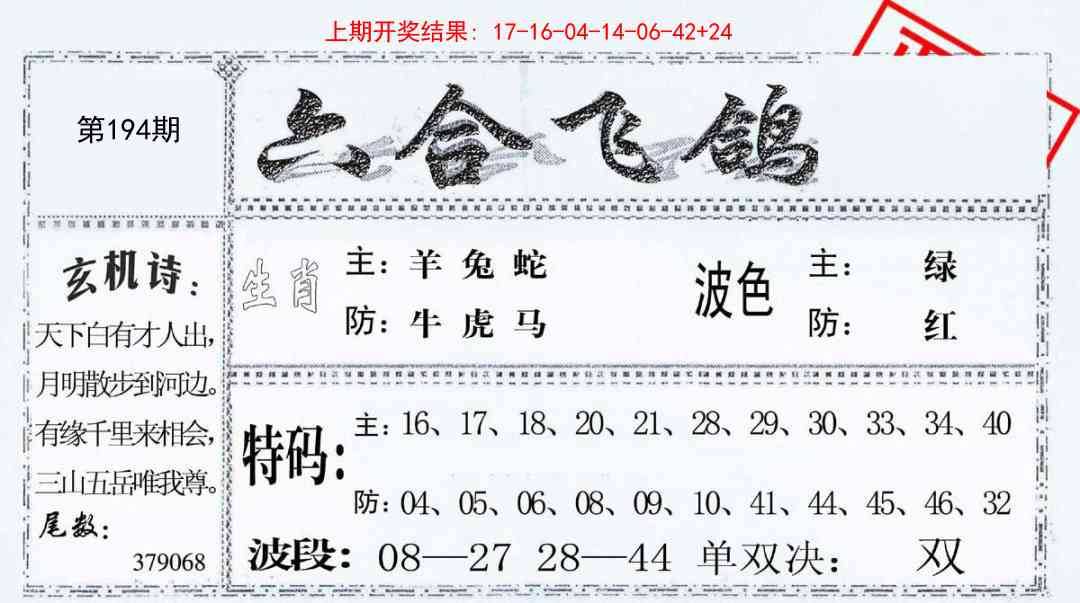 上期开奖结果：17-16-04-14-06-42+24
第194期
六合飞鸽
玄机诗：
天下白有才人出，
月明散步到河边。
有缘千里来相会，
三山五岳唯我尊。
尾数：
379068
生肖
主：羊 兔 蛇
防：牛 虎 马
波色
主： 绿
防： 红
特码：
主：16、17、18、20、21、28、29、30、33、34、40
防：04、05、06、08、09、10、41、44、45、46、32
波段：08—27 28—44 单双决： 双